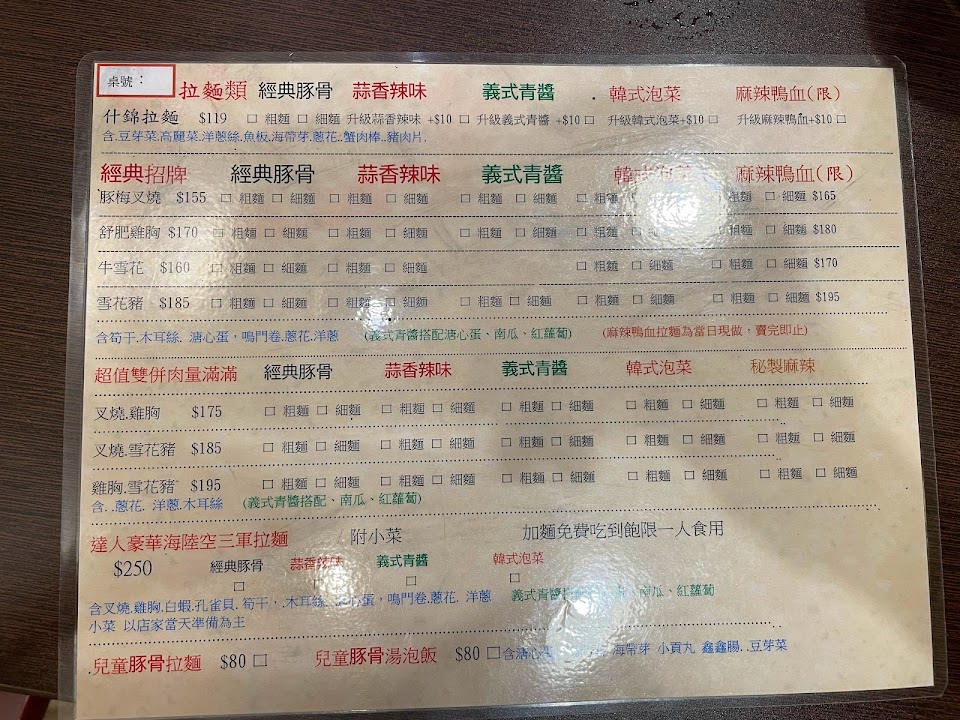 桌號：
拉麵類 經典豚骨 蒜香辣味 義式青醬 . 韓式泡菜 麻辣鴨血(限)
什錦拉麵 $119 □ 粗麵 □ 細麵 升級蒜香辣味 +$10 □ 升級義式青醬 +$10 □ 升級韓式泡菜+$10 □ 升級麻辣鴨血+$10 □
含.豆芽菜.高麗菜.洋蔥絲.魚板.海帶芽.蔥花..蟹肉棒..豬肉片.
經典招牌 經典豚骨 蒜香辣味 義式青醬 韓式泡菜 麻辣鴨血(限)
豚梅叉燒 $155 □ 粗麵 □ 細麵 □ 粗麵 □ 細麵 □ 粗麵 □ 細麵 □ 粗麵 粗麵 □ 細麵 $165
舒肥雞胸 $170 □ 粗麵 □ 細麵 □ 粗麵 □ 細麵 □ 粗麵 □ 細麵 □ 粗麵 □ 細麵 粗麵 □ 細麵 $180
牛雪花 $160 □ 粗麵 □ 細麵 □ 粗麵 □ 細麵 □ 粗麵 □ 細麵 □ 粗麵 □ 細麵 $170
雪花豬 $185 □ 粗麵 □ 細麵 □ 粗麵 □ 細麵 □ 粗麵 □ 細麵 □ 粗麵 □ 細麵 □ 粗麵 □ 細麵 $195
含筍干.木耳絲. 溏心蛋，鳴門卷.蔥花.洋蔥 (義式青醬搭配溏心蛋、南瓜、紅蘿蔔) (麻辣鴨血拉麵為當日現做，賣完即止)
超值雙併肉量滿滿 經典豚骨 蒜香辣味 義式青醬 韓式泡菜 秘製麻辣
叉燒.雞胸 $175 □ 粗麵 □ 細麵 □ 粗麵 □ 細麵 □ 粗麵 □ 細麵 □ 粗麵 □ 細麵 □ 粗麵 □ 細麵
叉燒.雪花豬 $185 □ 粗麵 □ 細麵 □ 粗麵 □ 細麵 □ 粗麵 □ 細麵 □ 粗麵 □ 細麵 □ 粗麵 □ 細麵
雞胸.雪花豬 $195 □ 粗麵 □ 細麵 □ 粗麵 □ 細麵 □ 粗麵 □ 細麵 □ 粗麵 □ 細麵 □ 粗麵 □ 細麵
含. .蔥花. 洋蔥.木耳絲 (義式青醬搭配、南瓜、紅蘿蔔)
達人豪華海陸空三軍拉麵 附小菜 加麵免費吃到飽限一人食用
$250 經典豚骨 蒜香辣味 義式青醬 韓式泡菜
□ □ □ □
含叉燒.雞胸.白蝦.孔雀貝. 筍干，.木耳絲. 心蛋，鳴門卷.蔥花. 洋蔥 義式青醬 南瓜、紅蘿蔔
小菜 以店家當天準備為主
.兒童豚骨拉麵 $80 □ 兒童豚骨湯泡飯 $80 □ 含溏心 海帶芽 小貢丸 鑫鑫腸. .豆芽菜